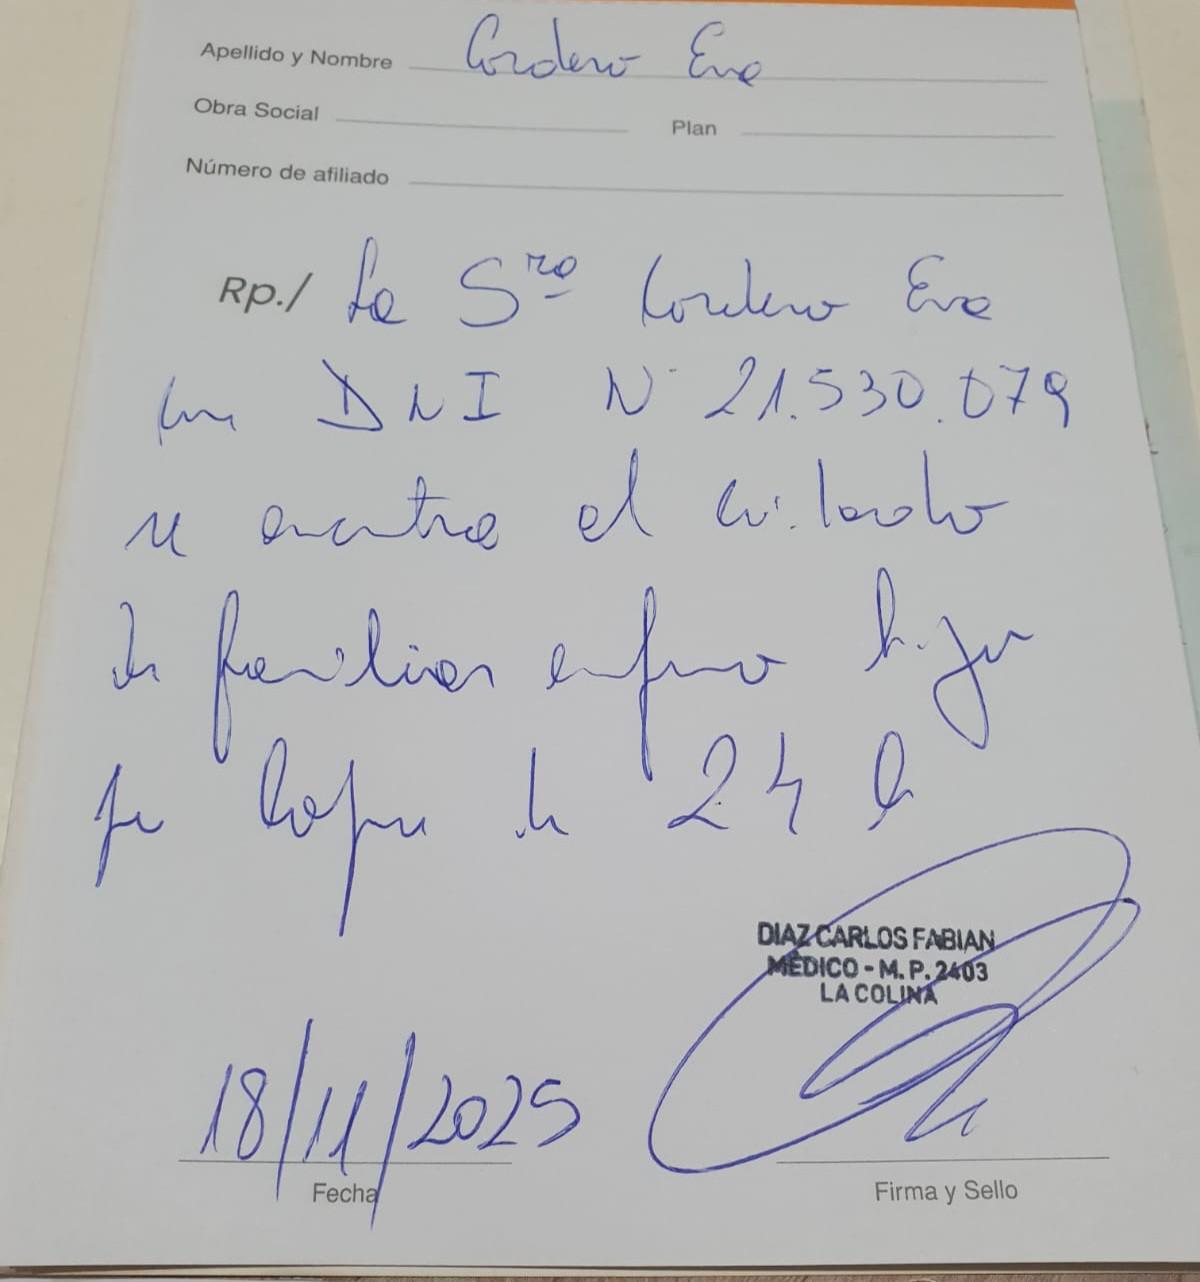 Apellido y Nombre Cordero Eva
Obra Social Plan
Número de afiliado
Rp./ La Sra Cordero Eva
con DNI Nº 21.530.079
se encuentra al cuidado
de familiar enfermo
por de 24 h
DIAZ CARLOS FABIAN
MÉDICO - M.P. 2403
LA COLINA
18/11/2025
Fecha
Firma y Sello